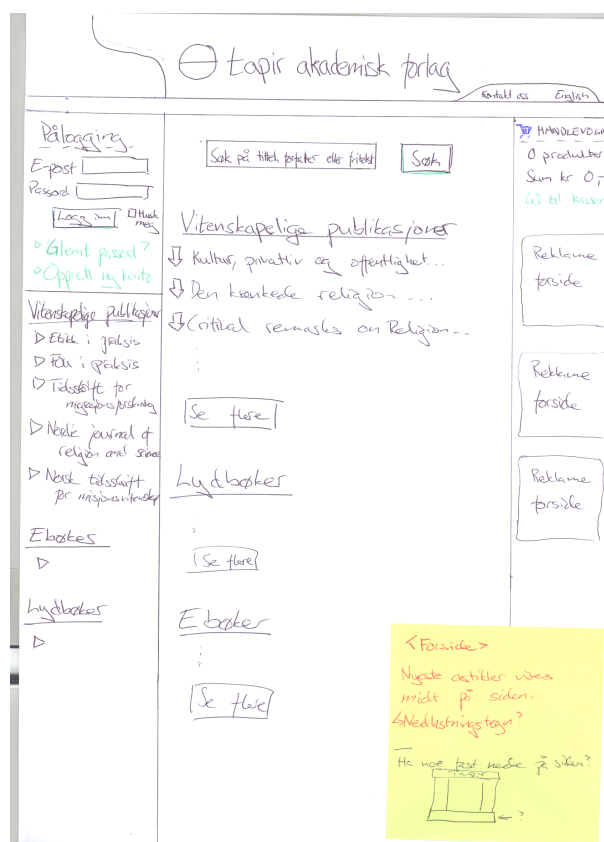 tapir akademisk forlag
Kontakt oss English
Pålogging
E-post
Passord
Logg inn Husk
meg
Glemt passord?
Opprett ny konto
Vitenskapelige publikasjoner
Etikk i praksis
FoU i praksis
Tidsskift for
migrasjonsforskning
Nordic journal of
religion and science
Norsk tidsskrift
for misjonsvitenskap
Ebøker
Lydbøker
Søk på tittel, forfatter eller fritekst Søk
Vitenskapelige publikasjoner
Kultur, privatliv og offentlighet...
Den krenkede religion ....
Critical remarks on Religion...
Se flere
Lydbøker
Se flere
Ebøker
Se flere
HANDLEVOGN
0 produkter
Sum kr 0,-
Gå til kassen
Reklame
forside
Reklame
forside
Reklame
forside
<Forside>
Nyeste artikler vises
midt på siden.
Nedlastningstegn?
Ha noe fast nede på siden?
Tapir
?